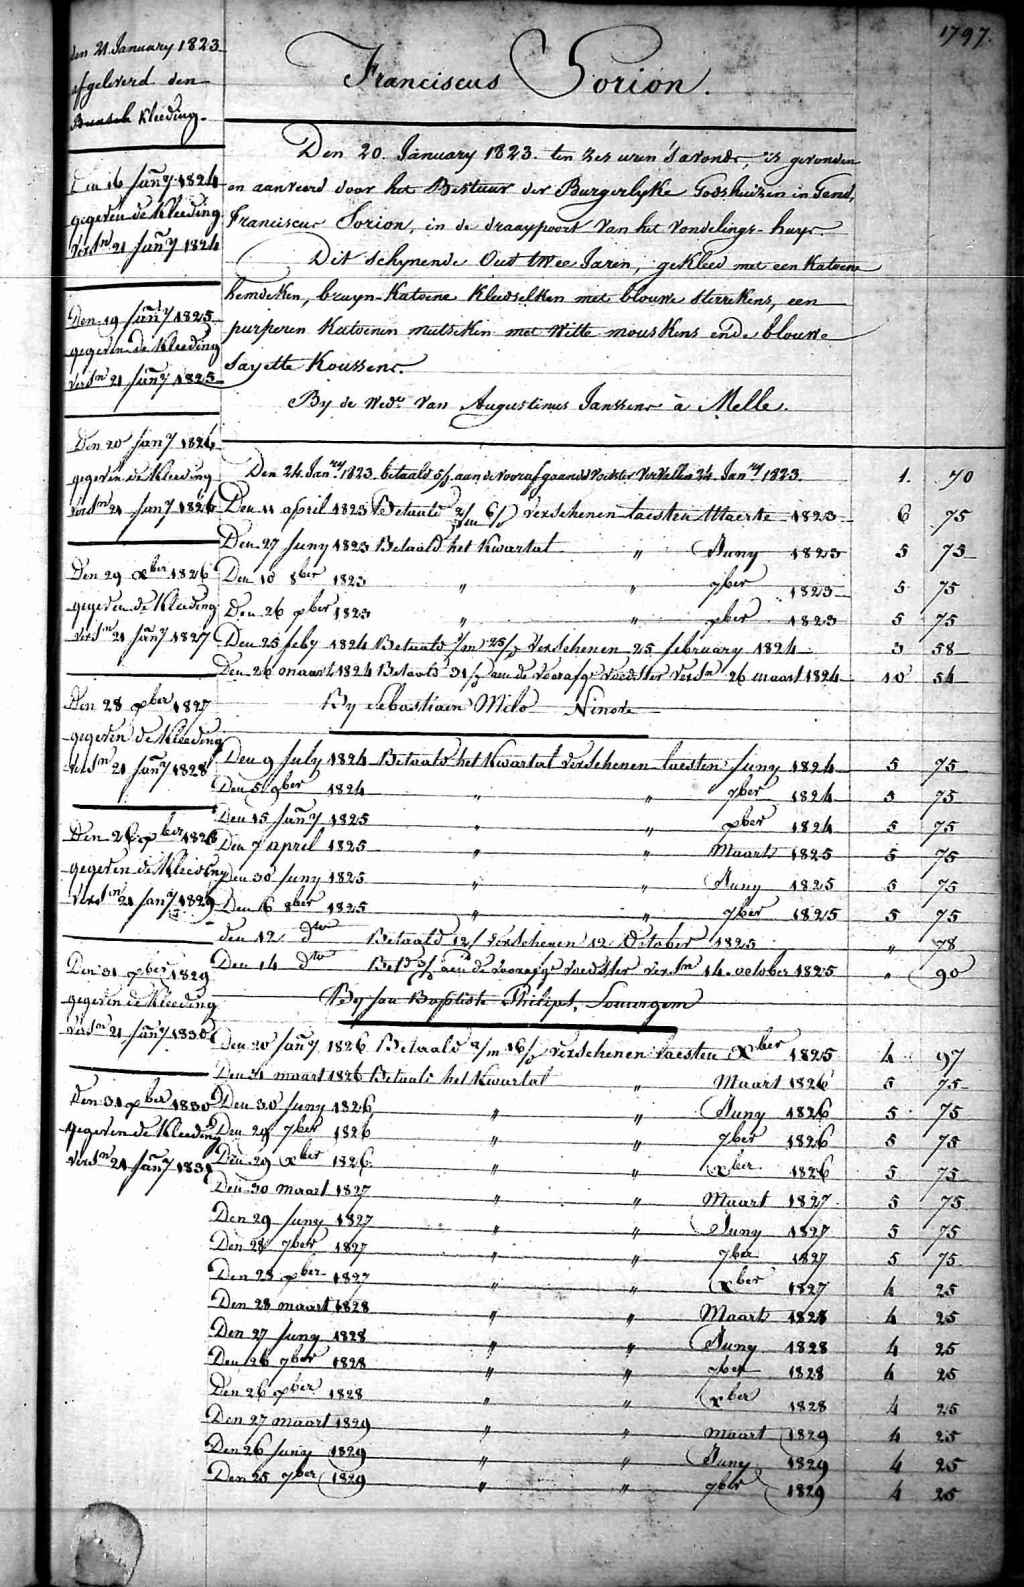 1797.
Franciscus Sorion.
den 21 January 1823
afgeleverd den
Kleeding.
Den 16 Janry 1824
gegeven de Kleeding
versn 21 Janry 1824
Den 19 Janry 1825
gegeven de Kleeding
versn 21 Janry 1825
Den 20 Janry 1826
gegeven de Kleeding
versn 21 Janry 1826
Den 29 xber 1826
gegeven de Kleeding
versn 21 Janry 1827
Den 28 xber 1827
gegeven de Kleeding
versn 21 Janry 1828
Den 26 xber 1828
gegeven de Kleeding
versn 21 Janry 1829
Den 31 xber 1829
gegeven de Kleeding
versn 21 Janry 1830
Den 31 xber 1830
gegeven de Kleeding
versn 21 Janry 1831
Den 20. January 1823. ten zes uren 's avonds, is gevonden
en aanveerd door het Bestuur der Burgerlyke Godshuizen in Gend,
Franciscus Sorion, in de draaypoort van het vondelings-huys
Dit schynende Oud twee Jaren, gekleed met een Katoene
hemdeken, bruyn-Katoene Kleedselken met blouwe sterrekens, een
purperen Katoenen mutseken met witte mouskens ende blouwe
Sayette Koussens.
By de Wede. van Augustinus Janssens à Melle.
Den 24 Janry 1823. betaald aan de voorafgaande Voedster Vervallen 24 Janry 1823. 1. 70
Den 11 april 1823 Betaald 2/m 6/ Verschenen laesten Maerte 1823 6 75
Den 27 Juny 1823 Betaald het Kwartal " Juny 1823 5 75
Den 10 8ber 1823 " " 7ber 1823 5 75
Den 26 xber 1823 " " xber 1823 5 75
Den 25 feby 1824 Betaald 1/m 25/ verschenen 25 february 1824 3 58
Den 26 maart 1824 Betaald 31/ aan de voorafge voedster versn 26 maart 1824 10 54
By Sebastiaen Milo Ninove
Den 9 July 1824 Betaald het Kwartal verschenen laesten Juny 1824 5 75
Den 5 9ber 1824 " " 7ber 1824 5 75
Den 15 Janry 1825 " " xber 1824 5 75
Den 7 april 1825 " " Maart 1825 5 75
Den 30 Juny 1825 " " Juny 1825 5 75
Den 6 8ber 1825 " " 7ber 1825 5 75
den 12 dto Betaald 12/ verschenen 12 October 1825 " 78
Den 14 dto Betd aen de voorafge voedster versn 14 october 1825 " 90
By Jan Baptiste Philips, Leuwrgem
Den 20 Janry 1826 Betaald 2/m 16/ verschenen laesten Xber 1825 4 97
Den 31 maart 1826 Betaald het Kwartal " Maart 1826 5 75
Den 30 Juny 1826 " " Juny 1826 5 75
Den 29 7ber 1826 " " 7ber 1826 5 75
Den 29 xber 1826 " " xber 1826 5 75
Den 30 maart 1827 " " Maart 1827 5 75
Den 29 Juny 1827 " " Juny 1827 5 75
Den 28 7ber 1827 " " 7ber 1827 5 75
Den 28 xber 1827 " " xber 1827 4 25
Den 28 maart 1828 " " Maart 1828 4 25
Den 27 Juny 1828 " " Juny 1828 4 25
Den 26 7ber 1828 " " 7ber 1828 4 25
Den 26 xber 1828 " " xber 1828 4 25
Den 27 maart 1829 " " maart 1829 4 25
Den 26 Juny 1829 " " Juny 1829 4 25
Den 25 7ber 1829 " " 7ber 1829 4 25